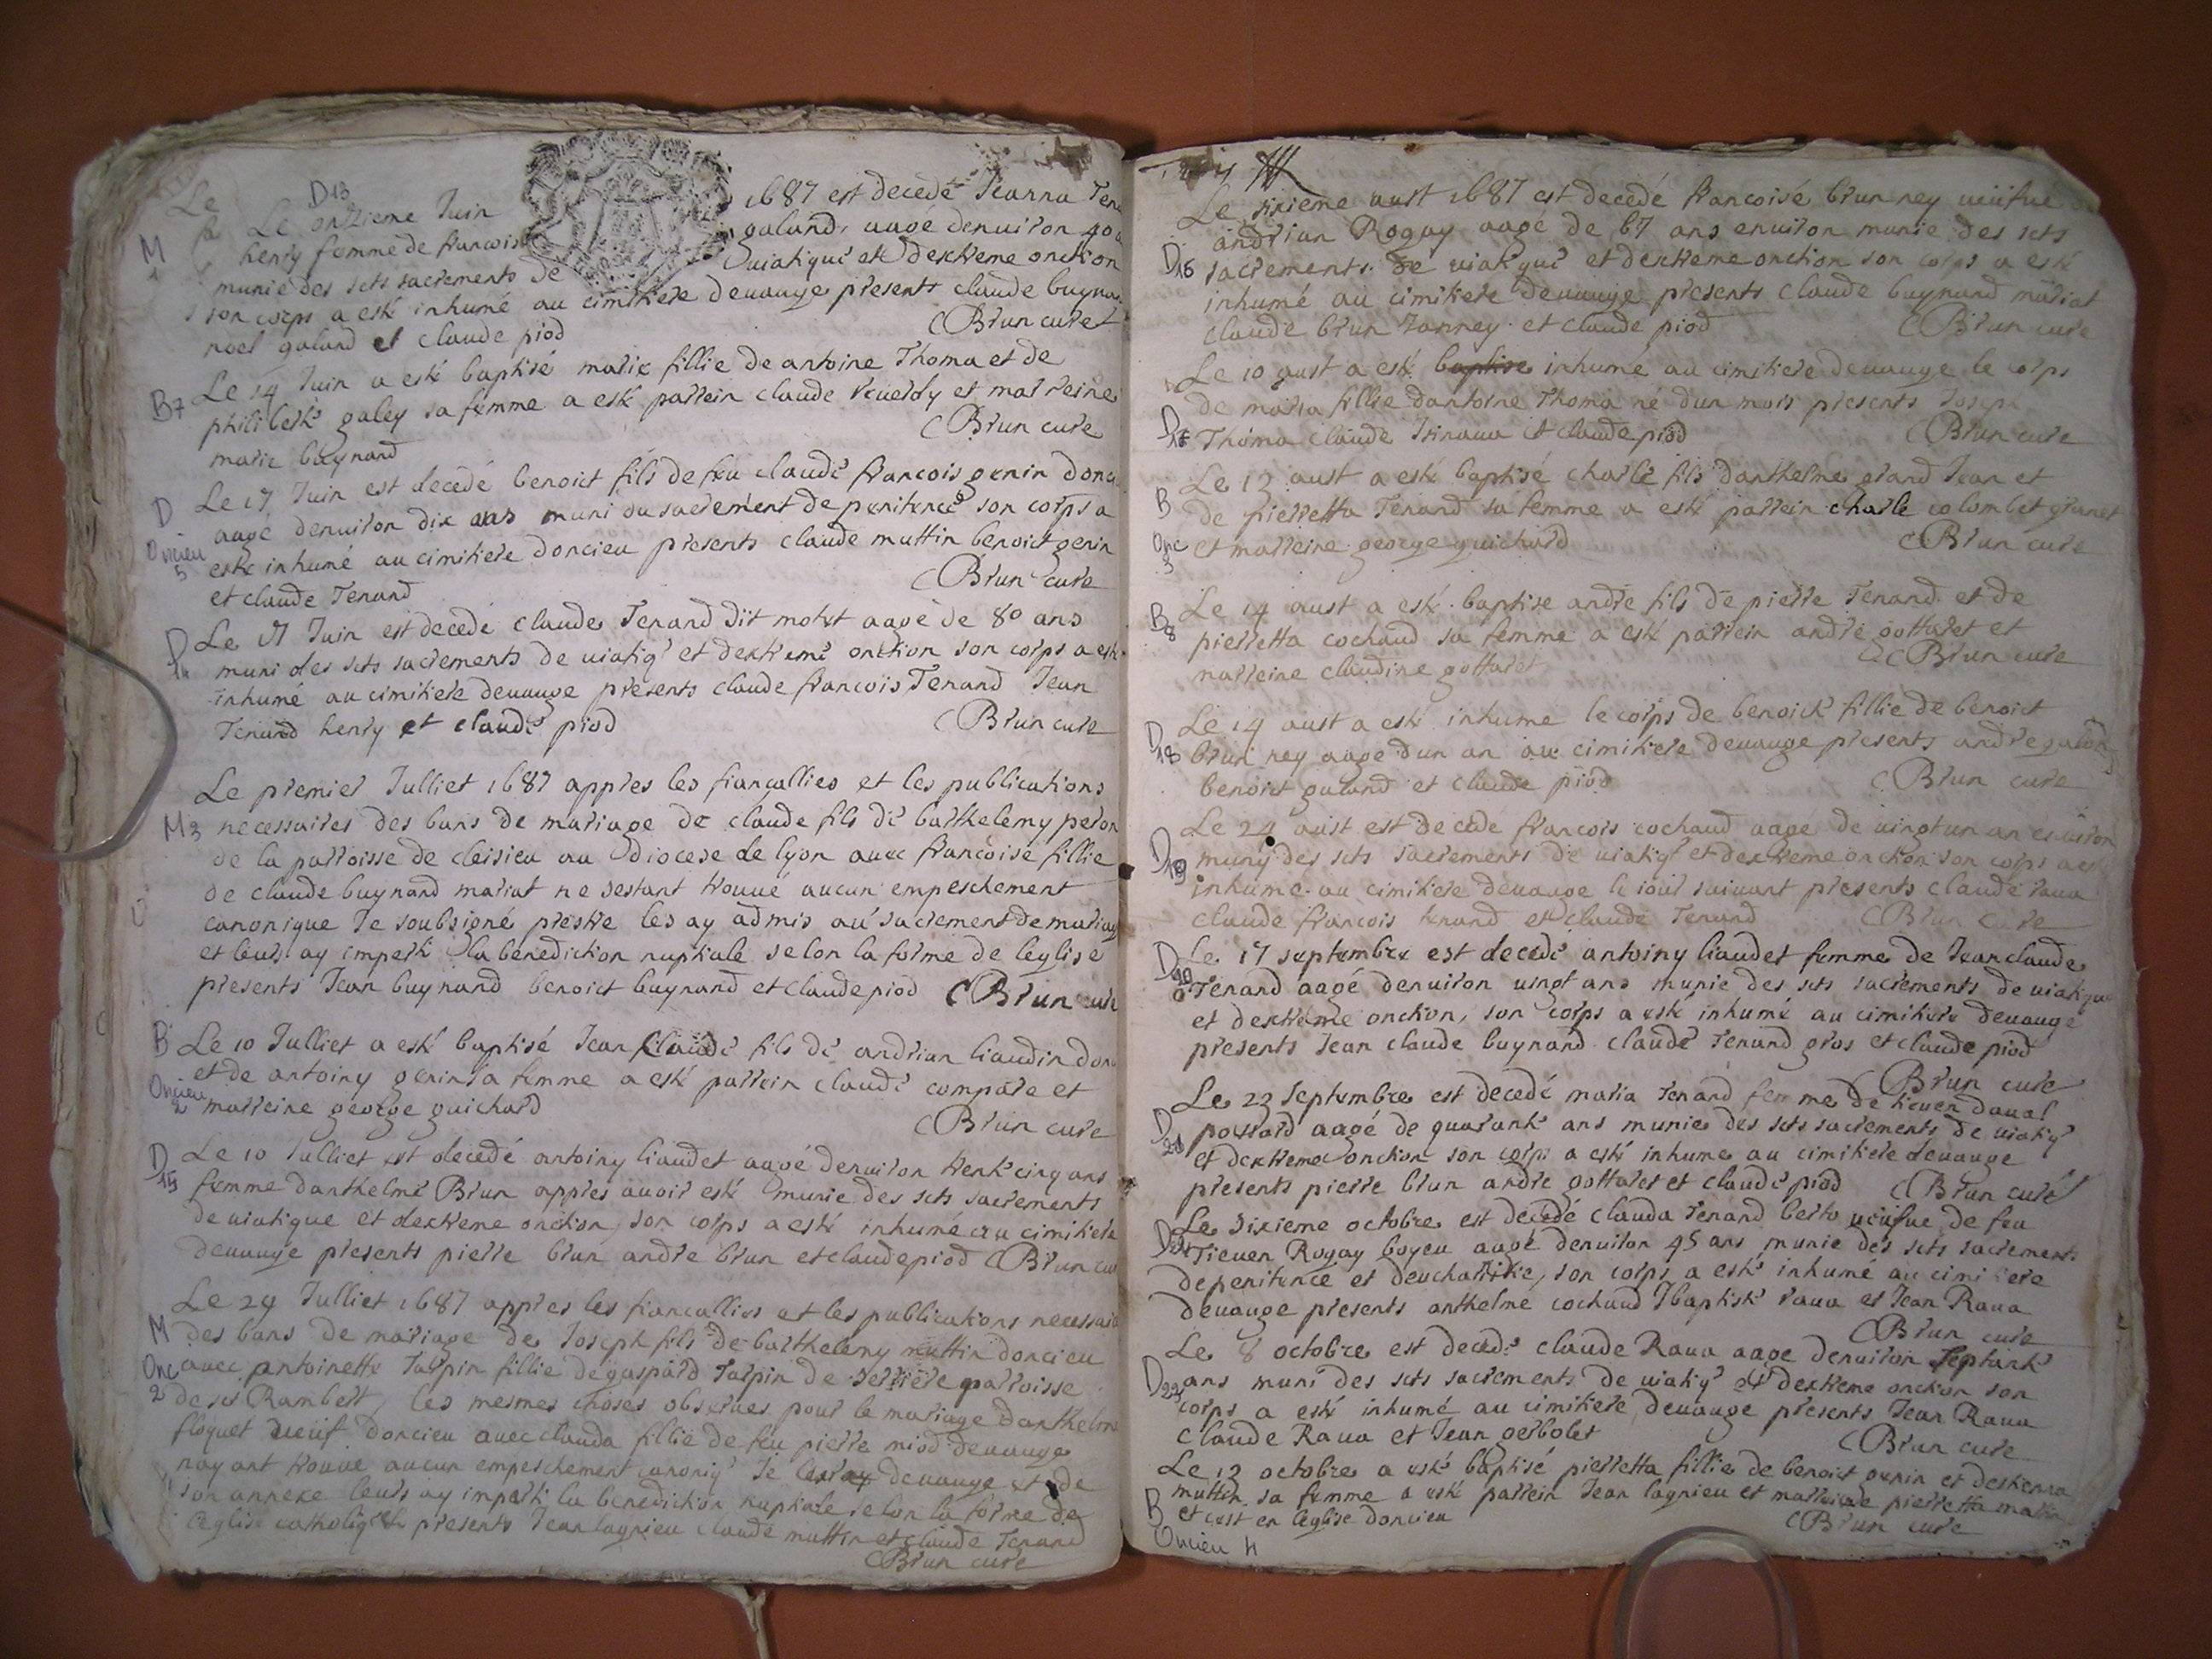 D13
Le
Le onzieme Juin 1687 est decedé Jeanna Tena
M
1
henry femme de francois galand, aagé denuiron 40 a
munie des scts sacrements de uiatique et dextreme onction
son corps a esté inhumé au cimitiere deuauge presents claude buyna
noel galand et claude piod Brun curé
B7
Le 14 Juin a esté baptisé marie fillie de antoine Thoma et de
philiberte galey sa femme a esté parrein claude et marreine
marie buynand Brun cure
D
Oncieu
5
Le 17 Juin est decedé benoict fils de feu claude francois genin donci
aagé denuiron dix ans muni du sacrement de penitence son corps a
esté inhumé au cimitiere doncieu presents claude muttin benoict genin
et claude Tenand Brun cure
D
14
Le 17 Juin est decedé claude Tenand dit motet aagé de 80 ans
muni des scts sacrements de uiatiq et dextreme onction son corps a esté
inhumé au cimitiere deuauge presents claude francois Tenand Jean
Tenand henry et claude piod Brun cure
Le premier Julliet 1687 appres les fiancallies et les publications
M3 necessaires des bans de mariage de claude fils de barthelemy peron
de la parroisse de cleisieu au diocese de lyon auec francoise fillie
de claude buynand mariat ne sestant trouué aucun empeschement
canonique Je soubsigné prestre les ay admis au sacrement de mariag
et leurs ay imperti la benediction nuptiale selon la forme de leglise
presents Jean buynand benoict buynand et claude piod Brun cure
B
Oncieu
2
Le 10 Julliet a esté baptisé Jean claude fils de andrian liaudin donc
et de antoiny genin sa femme a esté parrein claude compare et
marreine george guichard Brun cure
D
15
Le 10 Julliet est decedé antoiny liaudet aagé denuiron trente cinq ans
femme danthelme Brun appres auoir esté munie des scts sacrements
de uiatique et dextreme onction, son corps a esté inhumé au cimitiere
deuauge presents pierre brun andre brun et claude piod Brun cur
Le 29 Julliet 1687 appres les fiancallies et les publications necessair
M des bans de mariage de Joseph fils de barthelemy muttin doncieu
Onc
2
auec antoinette Tarpin fillie de gaspard Tarpin de Serriere parroisse
de sct Rambert, les mesmes choses obserues pour le mariage danthelm
floquet ueuf doncieu auec clauda fillie de feu pierre miod deuauge
nayant trouue aucun empeschement canoniq Je deuauge et de
son annexe leurs ay imperti la benediction nuptiale selon la forme de
leglise catholiq presents Jean lagnieu claude muttin et claude Tenand
Brun cure
Le sixieme aust 1687 est decedé francoise brun rey ueufue
andrian Rogay aagé de 67 ans enuiron munie des scts
D16 sacrements de uiatique et dextreme onction son corps a esté
inhumé au cimitiere deuauge presents claude buynand mariat
claude brun Zanney et claude piod Brun cure
Le 10 aust a esté baptise inhumé au cimitiere deuauge le corps
de maria fillie dantoine Thoma né dun mois presents Joseph
D
17
Thoma claude et claude piod Brun cure
Le 13 aust a esté baptisé charle fils danthelme grand Jean et
B
Onc
3
de pierretta Tenand sa femme a esté parrein charle colombet granet
et marreine george guichard Brun cure
B8
Le 14 aust a esté baptise andré fils de pierre Tenand et de
pierretta cochaud sa femme a esté parrein andré gottaret et
marreine claudine gottaret Brun cure
Le 14 aust a esté inhume le corps de benoict fillie de benoict
D
18
brun rey aagé dun an au cimitiere deuauge presents andre galand
benoict galand et claude piod Brun cure
Le 24 aust est decede francois cochaud aage de uingt un an enuiron
D
19
muny des scts sacrements de uiatiq et dextreme onction son corps a est
inhume au cimitiere deuauge le iour suiuant presents claude raua
claude francois tenand et claude Tenand Brun cure
D
20
Le 17 septembre est decedé antoiny liaudet femme de Jean claude
Tenand aagé denuiron uingt ans munie des scts sacrements de uiatique
et dextreme onction, son corps a esté inhumé au cimitiere deuauge
presents Jean claude buynand claude Tenand gros et claude piod
Brun cure
Le 23 Septembre est decedé maria Tenand femme de tieuen daual
D
21
aagé de quarante ans munie des scts sacrements de uiatiq
et dextreme onction son corps a esté inhume au cimitiere deuauge
presents pierre brun andre gottaret et claude piod Brun curé
D
22
Le Sixieme octobre est decedé clauda Tenand berto ueufue de feu
Tieuen Rogay boyeu aagé denuiron 45 ans munie des scts sacrements
de penitence et deucharistie, son corps a esté inhumé au cimitiere
deuauge presents anthelme cochaud Jbaptiste raua et Jean Raua
Brun cure
Le 8 octobre est decedé claude Raua aage denuiron septante
D23
ans muni des scts sacrements de uiatiq et dextreme onction son
corps a esté inhumé au cimitiere deuauge presents Jean Raua
Claude Raua et Jean gerbolet Brun cure
Le 12 octobre a esté baptisé pierretta fillie de benoict genin et
muttin sa femme a esté parrein Jean lagnieu et marreine pierretta
B et cest en leglise doncieu Brun cure
Oncieu 4